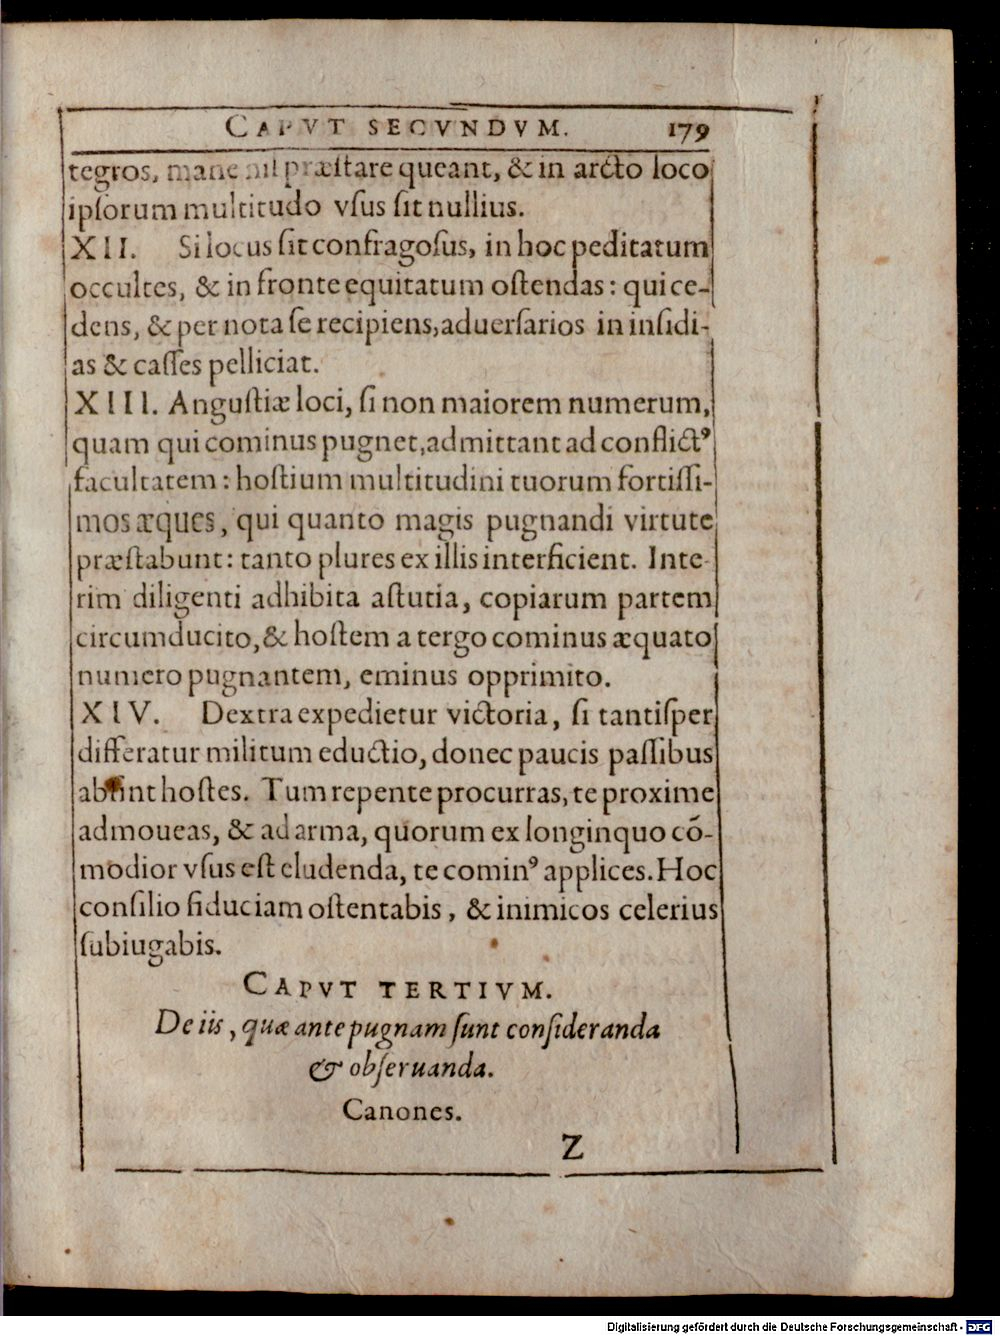 CAPVT SECVNDVM. 179
tegros, mane nil præſtare queant, & in arcto loco
ipſorum multitudo vſus ſit nullius.
XII. Si locus ſit confragoſus, in hoc peditatum
occultes, & in fronte equitatum oſtendas: qui ce-
dens, & per nota ſe recipiens, aduerſarios in inſidi-
as & caſſes pelliciat.
XIII. Anguſtiæ loci, ſi non maiorem numerum,
quam qui cominus pugnet, admittant ad conflictꝰ
facultatem: hoſtium multitudini tuorum fortiſſi-
mos æques, qui quanto magis pugnandi virtute
præſtabunt: tanto plures ex illis interficient. Inte-
rim diligenti adhibita aſtutia, copiarum partem
circumducito, & hoſtem a tergo cominus æquato
numero pugnantem, eminus opprimito.
XIV. Dextra expedietur victoria, ſi tantiſper
differatur militum eductio, donec paucis paſſibus
abſint hoſtes. Tum repente procurras, te proxime
admoueas, & ad arma, quorum ex longinquo cõ-
modior vſus eſt eludenda, te cominꝰ applices. Hoc
conſilio fiduciam oſtentabis, & inimicos celerius
ſubiugabis.
CAPVT TERTIVM.
De iis, quæ ante pugnam ſunt conſideranda
& obſeruanda.
Canones.
Z
Digitalisierung gefördert durch die Deutsche Forschungsgemeinschaft - DFG